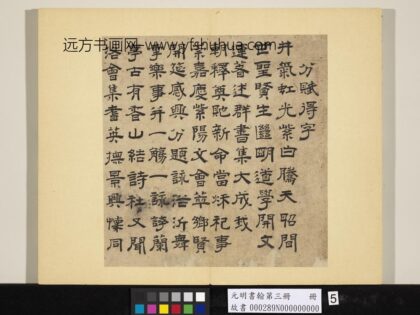 远方书画网 www.yfshuhua.com
分賦得字
井氣虹光紫白騰天昭間
世聖賢生繼明道學開文
運首述群書集大成我
朝釋奠馳新命當秋祀事
秉嘉慶紫陽文會萃鄉賢
開延感興分題詠浴沂舞
雩樂事并一觴一詠誇蘭
亭古有香山結詩社又聞
洛會集耆英撫景興懷同
元明書翰第三冊 冊
故書 000289N000000000
5